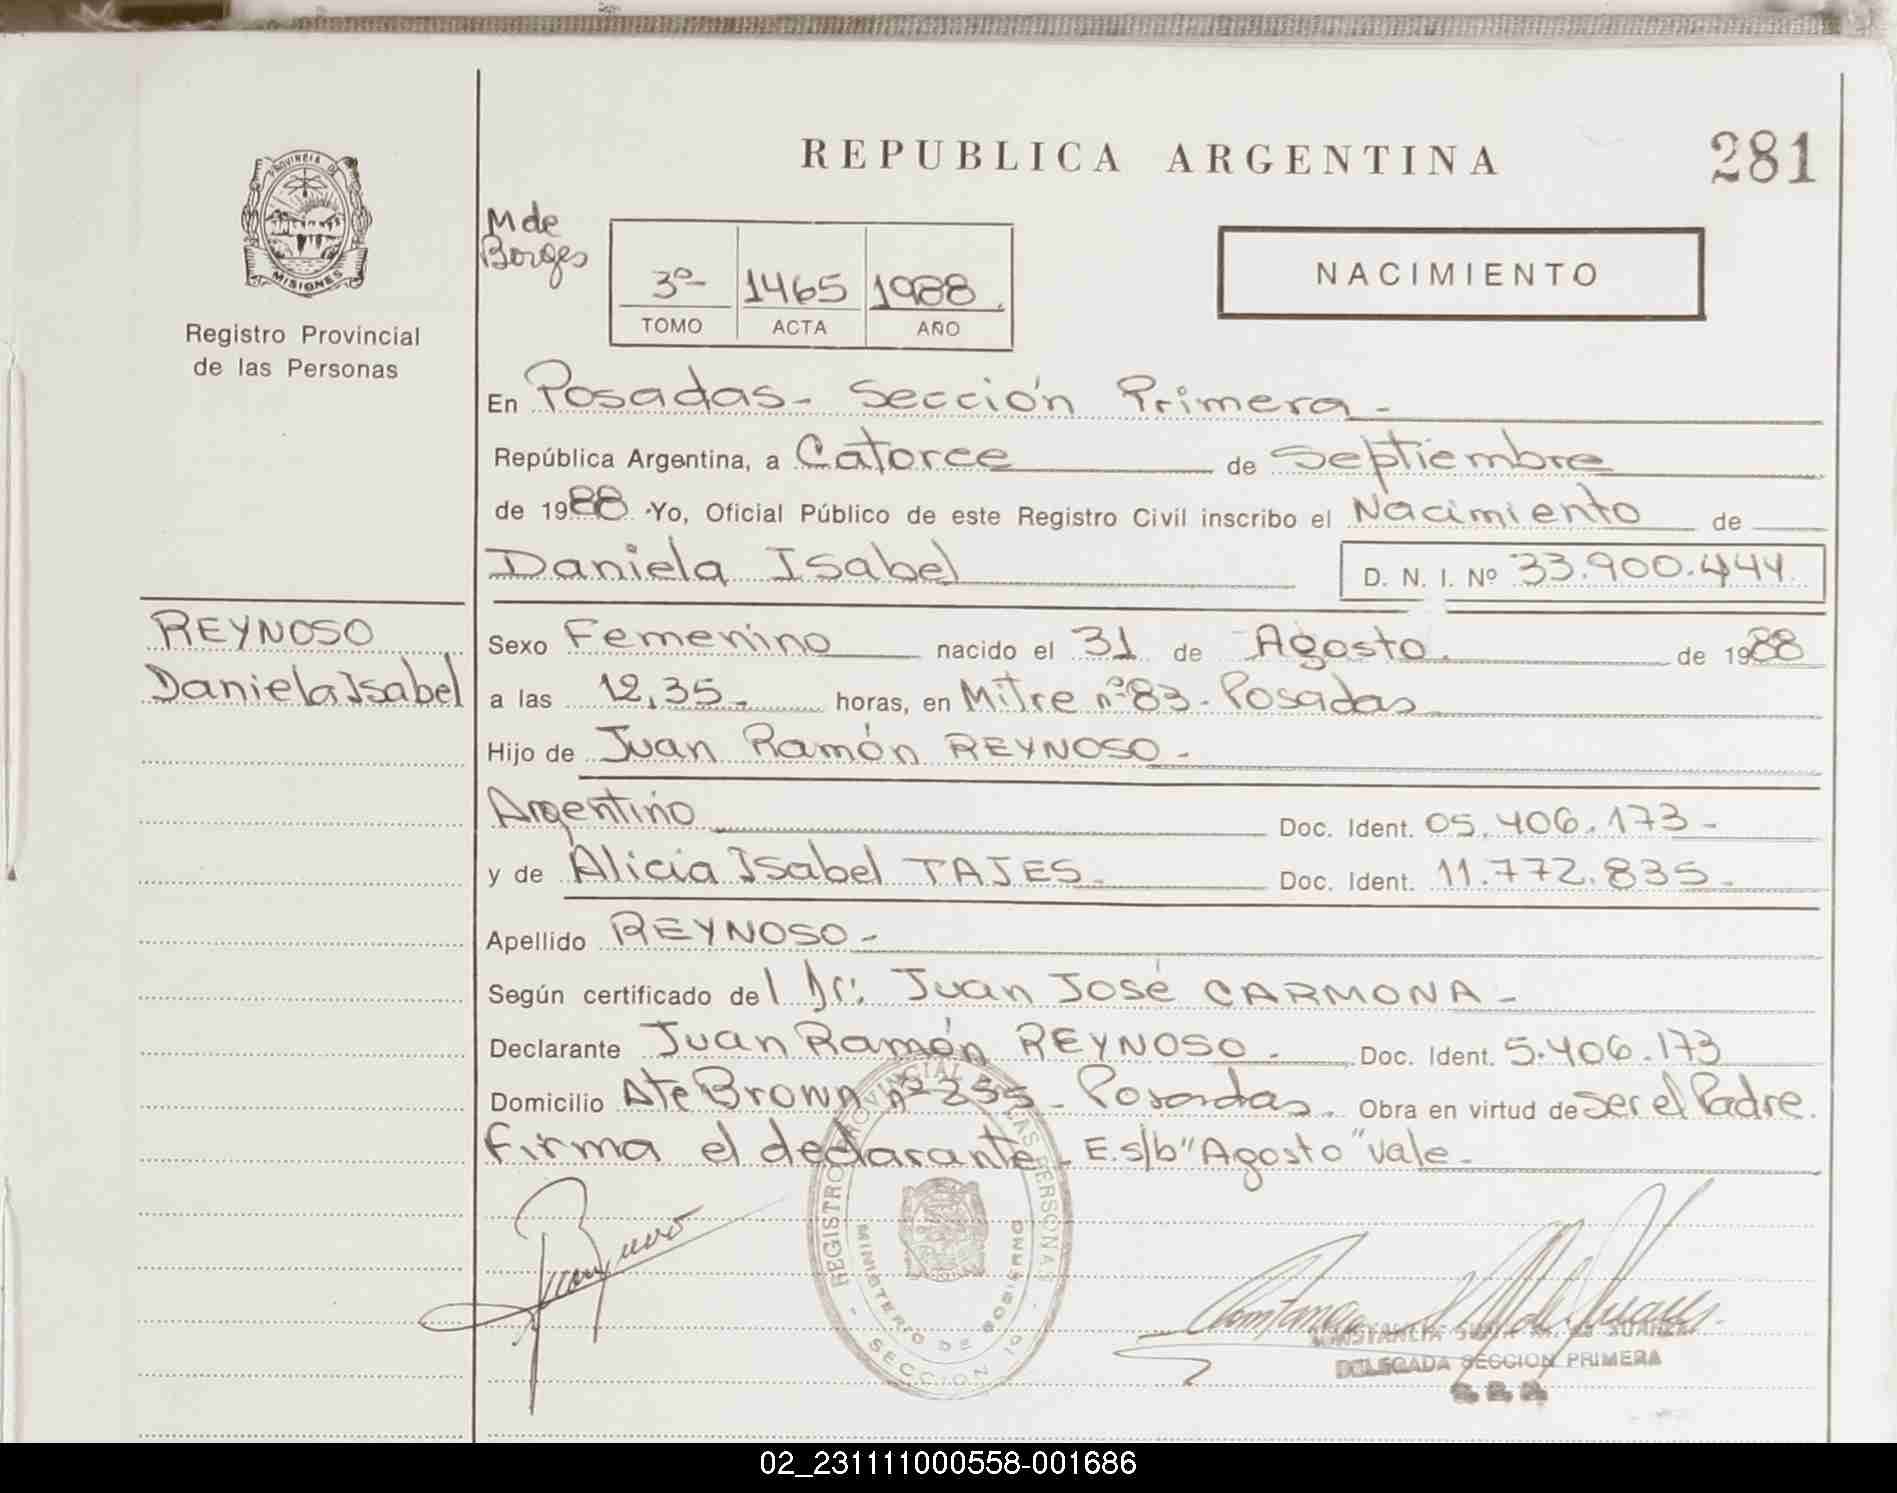 REPUBLICA ARGENTINA
281
PROVINCIA DE
MISIONES
Registro Provincial
de las Personas
M de
Borges
3º 1465 1988
TOMO ACTA AÑO
NACIMIENTO
En Posadas - Sección Primera -
República Argentina, a Catorce de Septiembre
de 1988 Yo, Oficial Público de este Registro Civil inscribo el Nacimiento de
Daniela Isabel
D. N. I. Nº 33.900.444.
REYNOSO
Daniela Isabel
Sexo Femenino nacido el 31 de Agosto de 1988
a las 12,35 - horas, en Mitre nº 83 - Posadas
Hijo de Juan Ramón REYNOSO -
Argentino Doc. Ident. 05.406.173 -
y de Alicia Isabel TAJES Doc. Ident. 11.772.835 -
Apellido REYNOSO -
Según certificado del Dr: Juan José CARMONA -
Declarante Juan Ramón REYNOSO - Doc. Ident. 5.406.173
Domicilio Ate Brown nº 255 - Posadas. Obra en virtud de ser el Padre.
Firma el declarante - E. s/b "Agosto" vale -
REGISTRO PROVINCIAL DE LAS PERSONAS
MINISTERIO DE GOBIERNO
SECCION 1º
DELEGADA SECCION PRIMERA
02_231111000558-001686